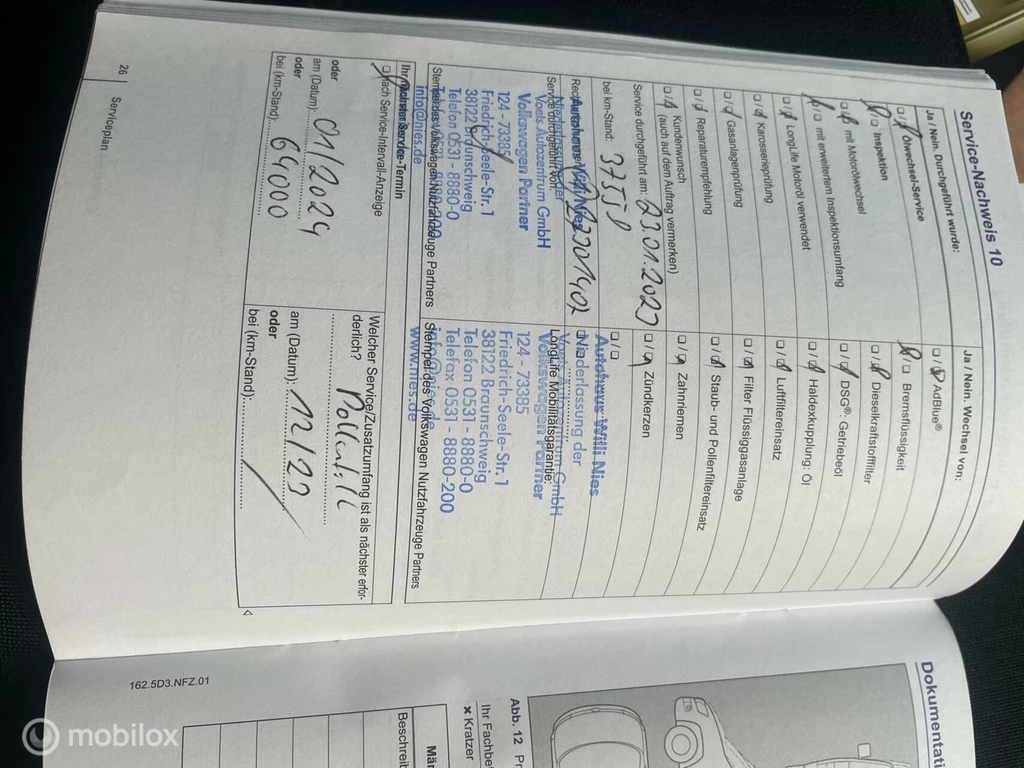 Service-Nachweis 10
Ja / Nein. Durchgeführt wurde:
Ölwechsel-Service
Inspektion
mit Motorölwechsel
mit erweitertem Inspektionsumfang
LongLife Motoröl verwendet
Karosserieprüfung
Gasanlagenprüfung
Reparaturempfehlung
Kundenwunsch
(auch auf dem Auftrag vermerken)
Service durchgeführt am: 23.01.2023
bei km-Stand: 37550
Autohaus Willi Nies
Niederlassung der
Service durchgeführt von:
Voets Autozentrum GmbH
Volkswagen Partner
124 - 73385
Friedrich-Seele-Str. 1
38122 Braunschweig
Telefon 0531 - 8880-0
info@nies.de
Stempel des Volkswagen Nutzfahrzeuge Partners
Ja / Nein. Wechsel von:
AdBlue®
Bremsflüssigkeit
Dieselkraftstofffilter
DSG®: Getriebeöl
Haldexkupplung: Öl
Luftfiltereinsatz
Filter Flüssiggasanlage
Staub- und Pollenfiltereinsatz
Zahnriemen
Zündkerzen
Autohaus Willi Nies
Niederlassung der
Voets Autozentrum GmbH
LongLife Mobilitätsgarantie:
Volkswagen Partner
124 - 73385
Friedrich-Seele-Str. 1
38122 Braunschweig
Telefon 0531 - 8880-0
Telefax 0531 - 8880-200
info@nies.de
Stempel des Volkswagen Nutzfahrzeuge Partners
www.nies.de
Ihr nächster Service-Termin
nach Service-Intervall-Anzeige
oder
am (Datum): 01/2024
oder
bei (km-Stand): 64000
Welcher Service/Zusatzumfang ist als nächster erfor-
derlich?
am (Datum): 12/23
oder
bei (km-Stand):
26 Serviceplan
162.5D3.NFZ.01
Dokumentati
Abb. 12 Pr
Ihr Fachbe
× Kratzer
Män
Beschreib
mobilox